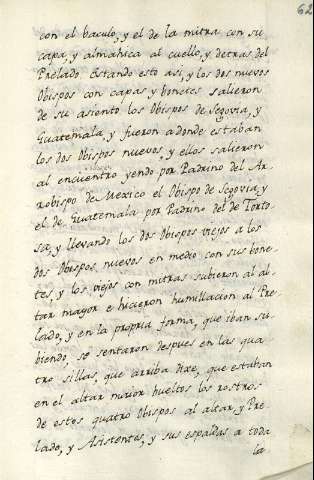 62
con el baculo, y el de la mitra con su
capa, y almahica al cuello, y detras del
Prelado. Estando esto asi, y los dos nuevos
Obispos con capas y bonetes salieron
de su asiento los Obispos de Segovia, y
Guatemala, y fueron adonde estaban
los dos Obispos nuevos, y ellos salieron
al encuentro yendo por Padrino del Ar-
zobispo de Mexico el Obispo de Segovia, y
el de Guatemala por Padrino del de Torto-
sa, y llevando los dos Obispos viejos a los
dos Obispos nuevos en medio con sus bone-
tes, y los viejos con mitras subieron al al-
tar mayor e hicieron humillacion al Pre-
lado, y en la propria forma, que iban su-
biendo, se sentaron despues en las qua-
tro sillas, que arriba dixe, que estaban
en el altar maior bueltos los rostros
de estos quatro Obispos al altar, y Pre-
lado, y Asistentes, y sus espaldas a toda
la